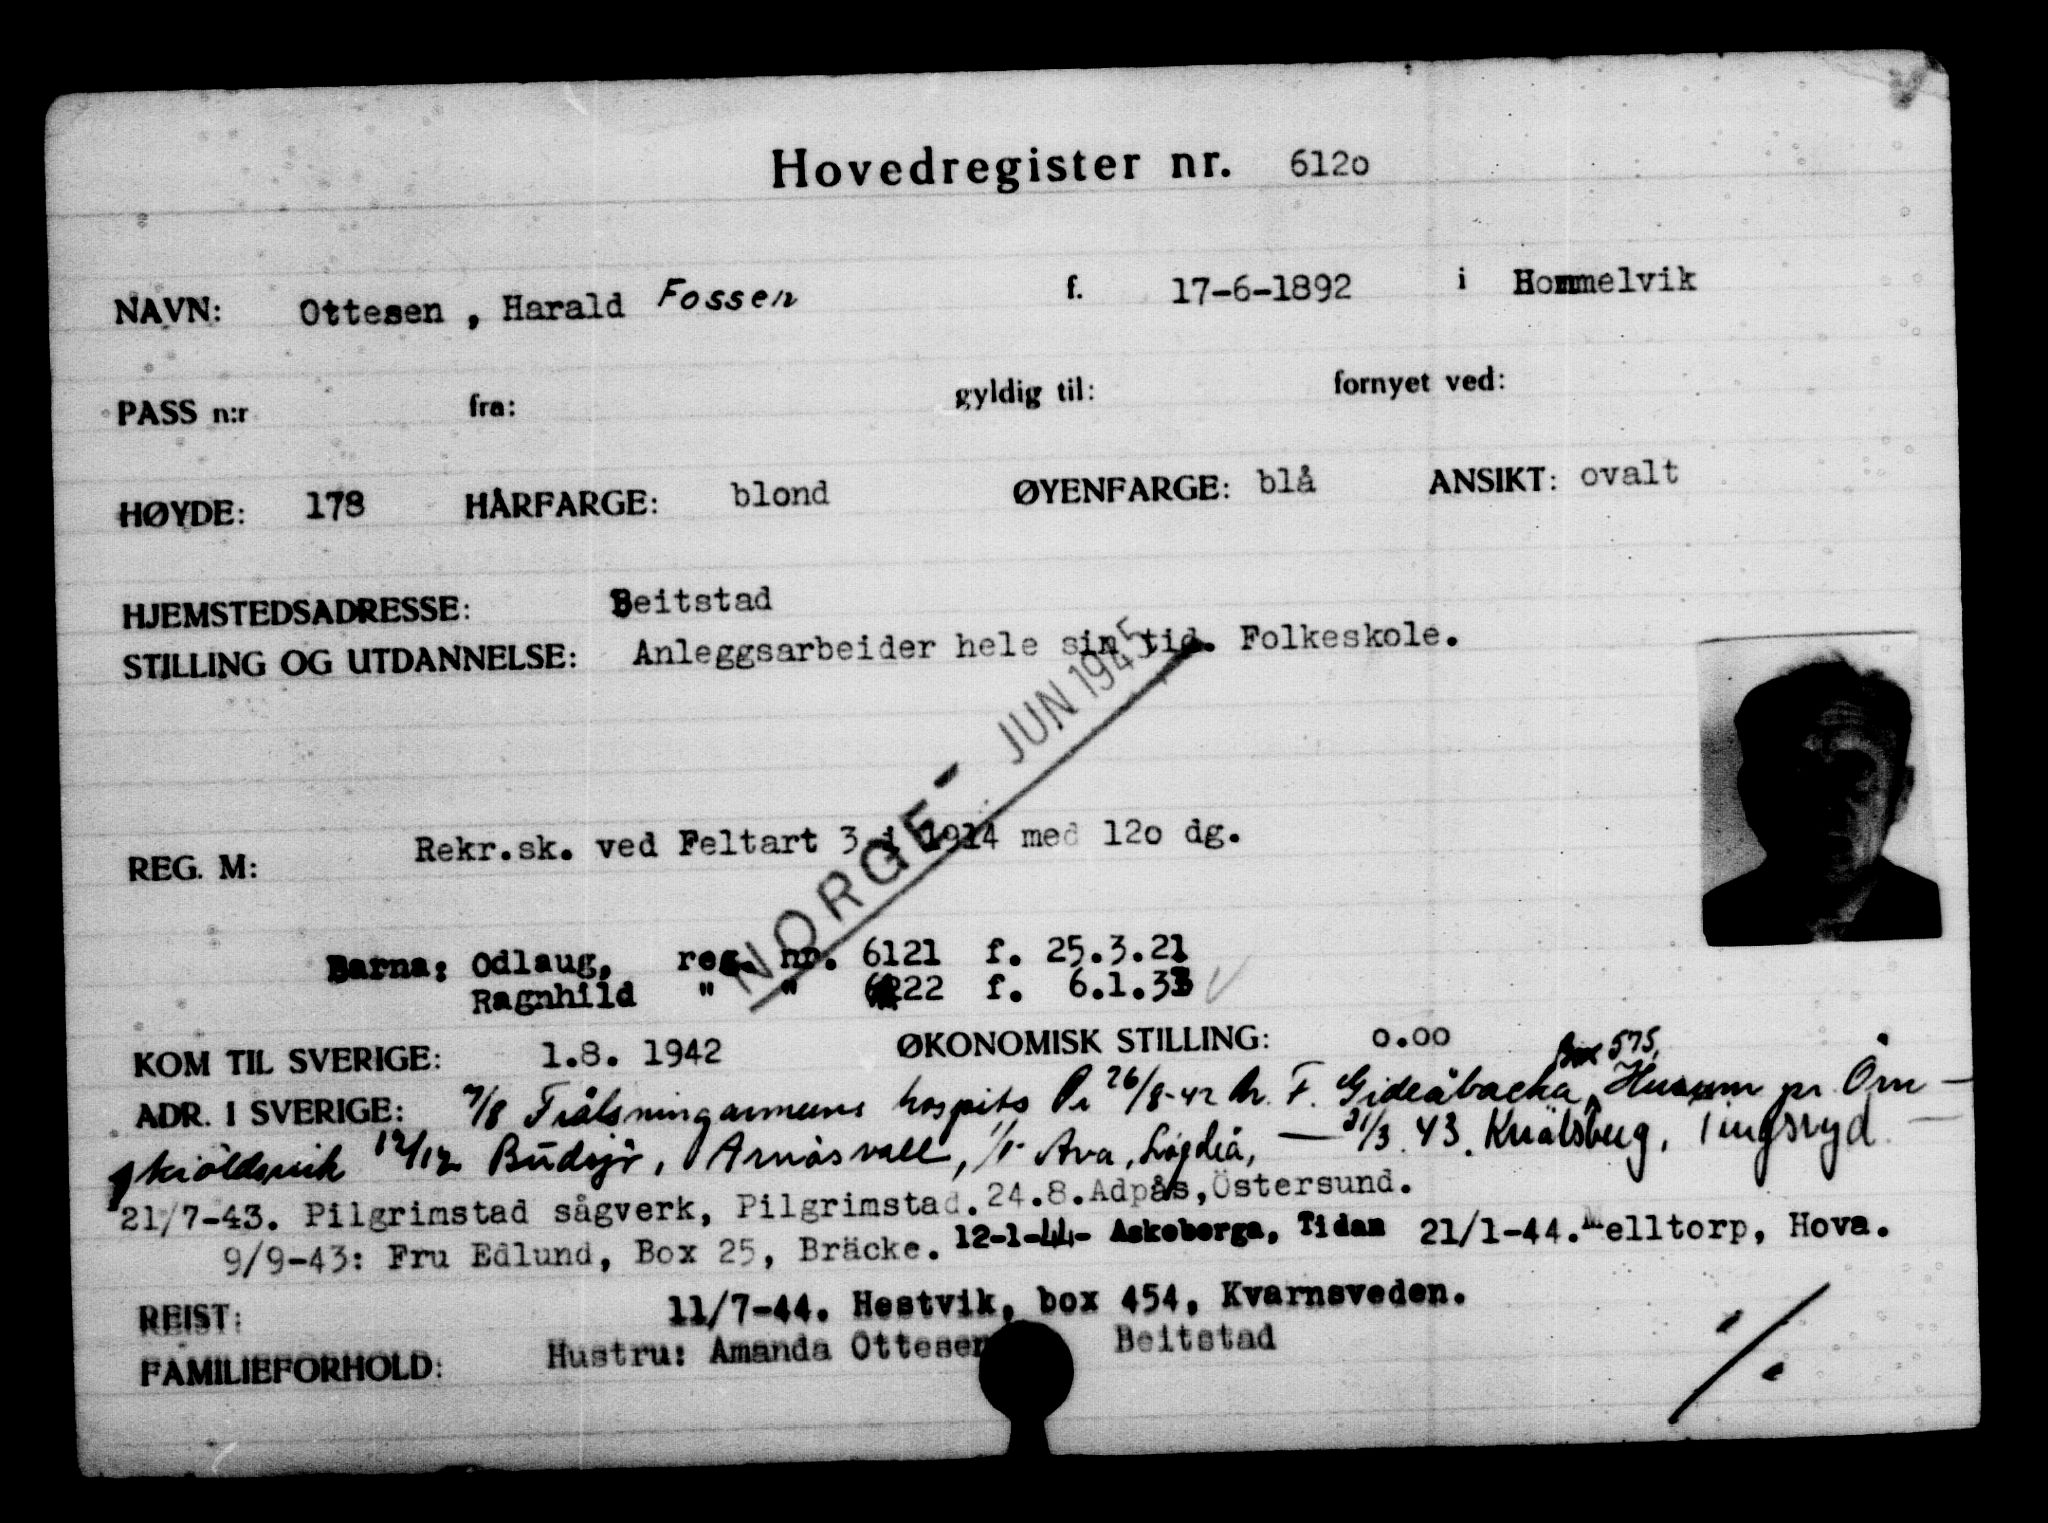 Hovedregister nr. 612o
NAVN: Ottesen , Harald Fossen f. 17-6-1892 i Hommelvik
PASS n:r fra: gyldig til: fornyet ved:
HØYDE: 178 HÅRFARGE: blond ØYENFARGE: blå ANSIKT: ovalt
HJEMSTEDSADRESSE: Beitstad
STILLING OG UTDANNELSE: Anleggsarbeider hele sin tid. Folkeskole.
NORGE - JUN 1945
REG. M: Rekr.sk. ved Feltart 3 i 1914 med 12o dg.
Barna: Odlaug, reg. nr. 6121 f. 25.3.21
Ragnhild " " 6122 f. 6.1.33
KOM TIL SVERIGE: 1.8. 1942 ØKONOMISK STILLING: o.oo
Box 575,
ADR. I SVERIGE: 7/8 Frälsningarmeens hospits 26/8-42 F. Gideåbacka, Husum pr. Örn-
skiöldsvik 12/12 Budsjö, Arnäsvall, Ava, Lögdeå, — 21/3 43. Knälsberg, Tingsryd. —
21/7-43. Pilgrimstad sågverk, Pilgrimstad. 24.8. Adpås, Östersund.
9/9-43: Fru Edlund, Box 25, Bräcke. 12-1-44- Askeberga, Tidan 21/1-44. Melltorp, Hova.
REIST: 11/7-44. Hestvik, box 454, Kvarnsveden.
FAMILIEFORHOLD: Hustru: Amanda Ottesen Beitstad